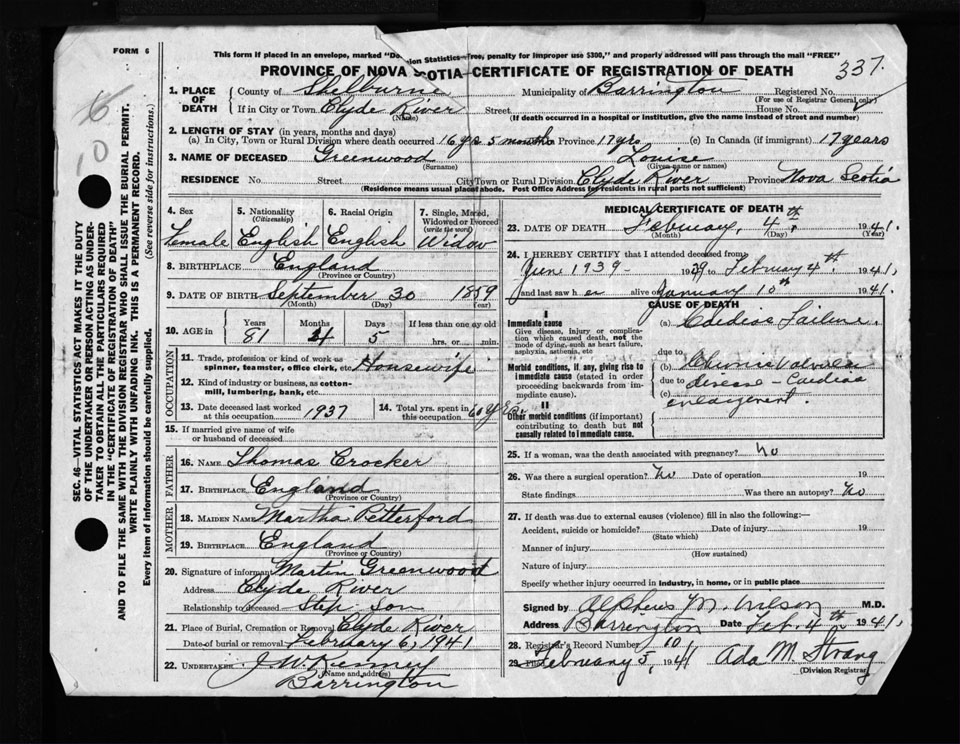 FORM 6
This form if placed in an envelope, marked "Do ion Statistics—Free, penalty for improper use $300," and properly addressed will pass through the mail "FREE"
PROVINCE OF NOVA SCOTIA—CERTIFICATE OF REGISTRATION OF DEATH
337
1. PLACE OF DEATH
County of Shelburne
Municipality of Barrington
Registered No.
(For use of Registrar General only)
If in City or Town Clyde River Street House No.
(Name)
(If death occurred in a hospital or institution, give the name instead of street and number)
2. LENGTH OF STAY (in years, months and days)
(a) In City, Town or Rural Division where death occurred 16 yrs 5 months Province 17 yrs (c) In Canada (if immigrant) 17 years
3. NAME OF DECEASED Greenwood Louise
(Surname) (Given name or names)
RESIDENCE No. Street City Town or Rural Division Clyde River Province Nova Scotia
(Residence means usual place of abode. Post Office Address for residents in rural parts not sufficient)
4. Sex
Female
5. Nationality
(Citizenship)
English
6. Racial Origin
English
7. Single, Married, Widowed or Divorced
(write the word)
Widow
8. BIRTHPLACE England
(Province or Country)
9. DATE OF BIRTH September 30 1859
(Month) (Day) (Year)
10. AGE in
Years Months Days If less than one day old
81 4 5 hrs. or min.
OCCUPATION
11. Trade, profession or kind of work as
spinner, teamster, office clerk, etc. Housewife
12. Kind of industry or business, as cotton-
mill, lumbering, bank, etc.
13. Date deceased last worked
at this occupation 1937
14. Total yrs. spent in
this occupation 60 yrs.
15. If married give name of wife
or husband of deceased
FATHER
16. NAME Thomas Crocker
17. BIRTHPLACE England
(Province or Country)
MOTHER
18. MAIDEN NAME Martha Pettesford
19. BIRTHPLACE England
(Province or Country)
20. Signature of informant Martin Greenwood
Address Clyde River
Relationship to deceased Step Son
21. Place of Burial, Cremation or Removal Clyde River
Date of burial or removal February 6, 1941
22. UNDERTAKER J. W. Kenney
(Name and address)
Barrington
MEDICAL CERTIFICATE OF DEATH
23. DATE OF DEATH February, 4th, 1941.
(Month) (Day) (Year)
24. I HEREBY CERTIFY that I attended deceased from
June 1939 – 1939 to February 4th, 1941,
and last saw her alive on January 10th 1941.
CAUSE OF DEATH
I
Immediate cause
Give disease, injury or complica-
tion which caused death, not the
mode of dying, such as heart failure,
asphyxia, asthenia, etc
(a) Cardiac Failure.
due to
Morbid conditions, if any, giving rise to
immediate cause (stated in order
proceeding backwards from im-
mediate cause).
(b) Chronic Valvular
due to disease – Cardiac
(c) enlargement.
II
Other morbid conditions (if important)
contributing to death but not
causally related to immediate cause.
25. If a woman, was the death associated with pregnancy? no
26. Was there a surgical operation? No Date of operation 19
State findings Was there an autopsy? No
27. If death was due to external causes (violence) fill in also the following:—
Accident, suicide or homicide? Date of injury 19
(State which)
Manner of injury
(How sustained)
Nature of injury
Specify whether injury occurred in industry, in home, or in public place
Signed by Alpheus M. Wilson M.D.
Address Barrington Date Feb. 4th 1941,
28. Registrar's Record Number 10
29. Filed February 5, 1941 Ada M. Strang
(Division Registrar)
SEC. 46—VITAL STATISTICS ACT MAKES IT THE DUTY
OF THE UNDERTAKER OR PERSON ACTING AS UNDER-
TAKER TO OBTAIN ALL THE PARTICULARS REQUIRED
IN THE "CERTIFICATE OF REGISTRATION OF DEATH"
AND TO FILE THE SAME WITH THE DIVISION REGISTRAR WHO SHALL ISSUE THE BURIAL PERMIT.
WRITE PLAINLY WITH UNFADING INK. THIS IS A PERMANENT RECORD.
Every item of information should be carefully supplied. (See reverse side for instructions.)